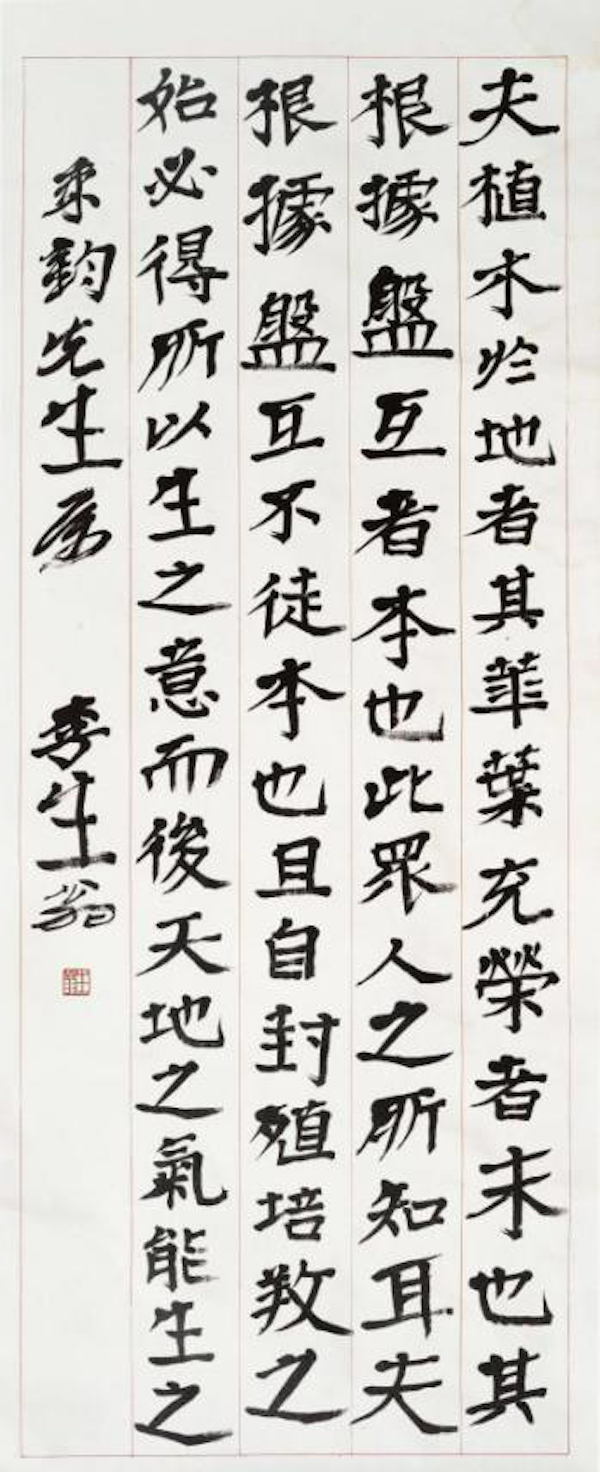 夫植木於地者其華葉充榮者末也其
根據盤互者本也此眾人之所知耳夫
根據盤互不徒本也且自封殖培栽之
始必得所以生之意而後天地之氣能生之
采韵先生屬
李生翁